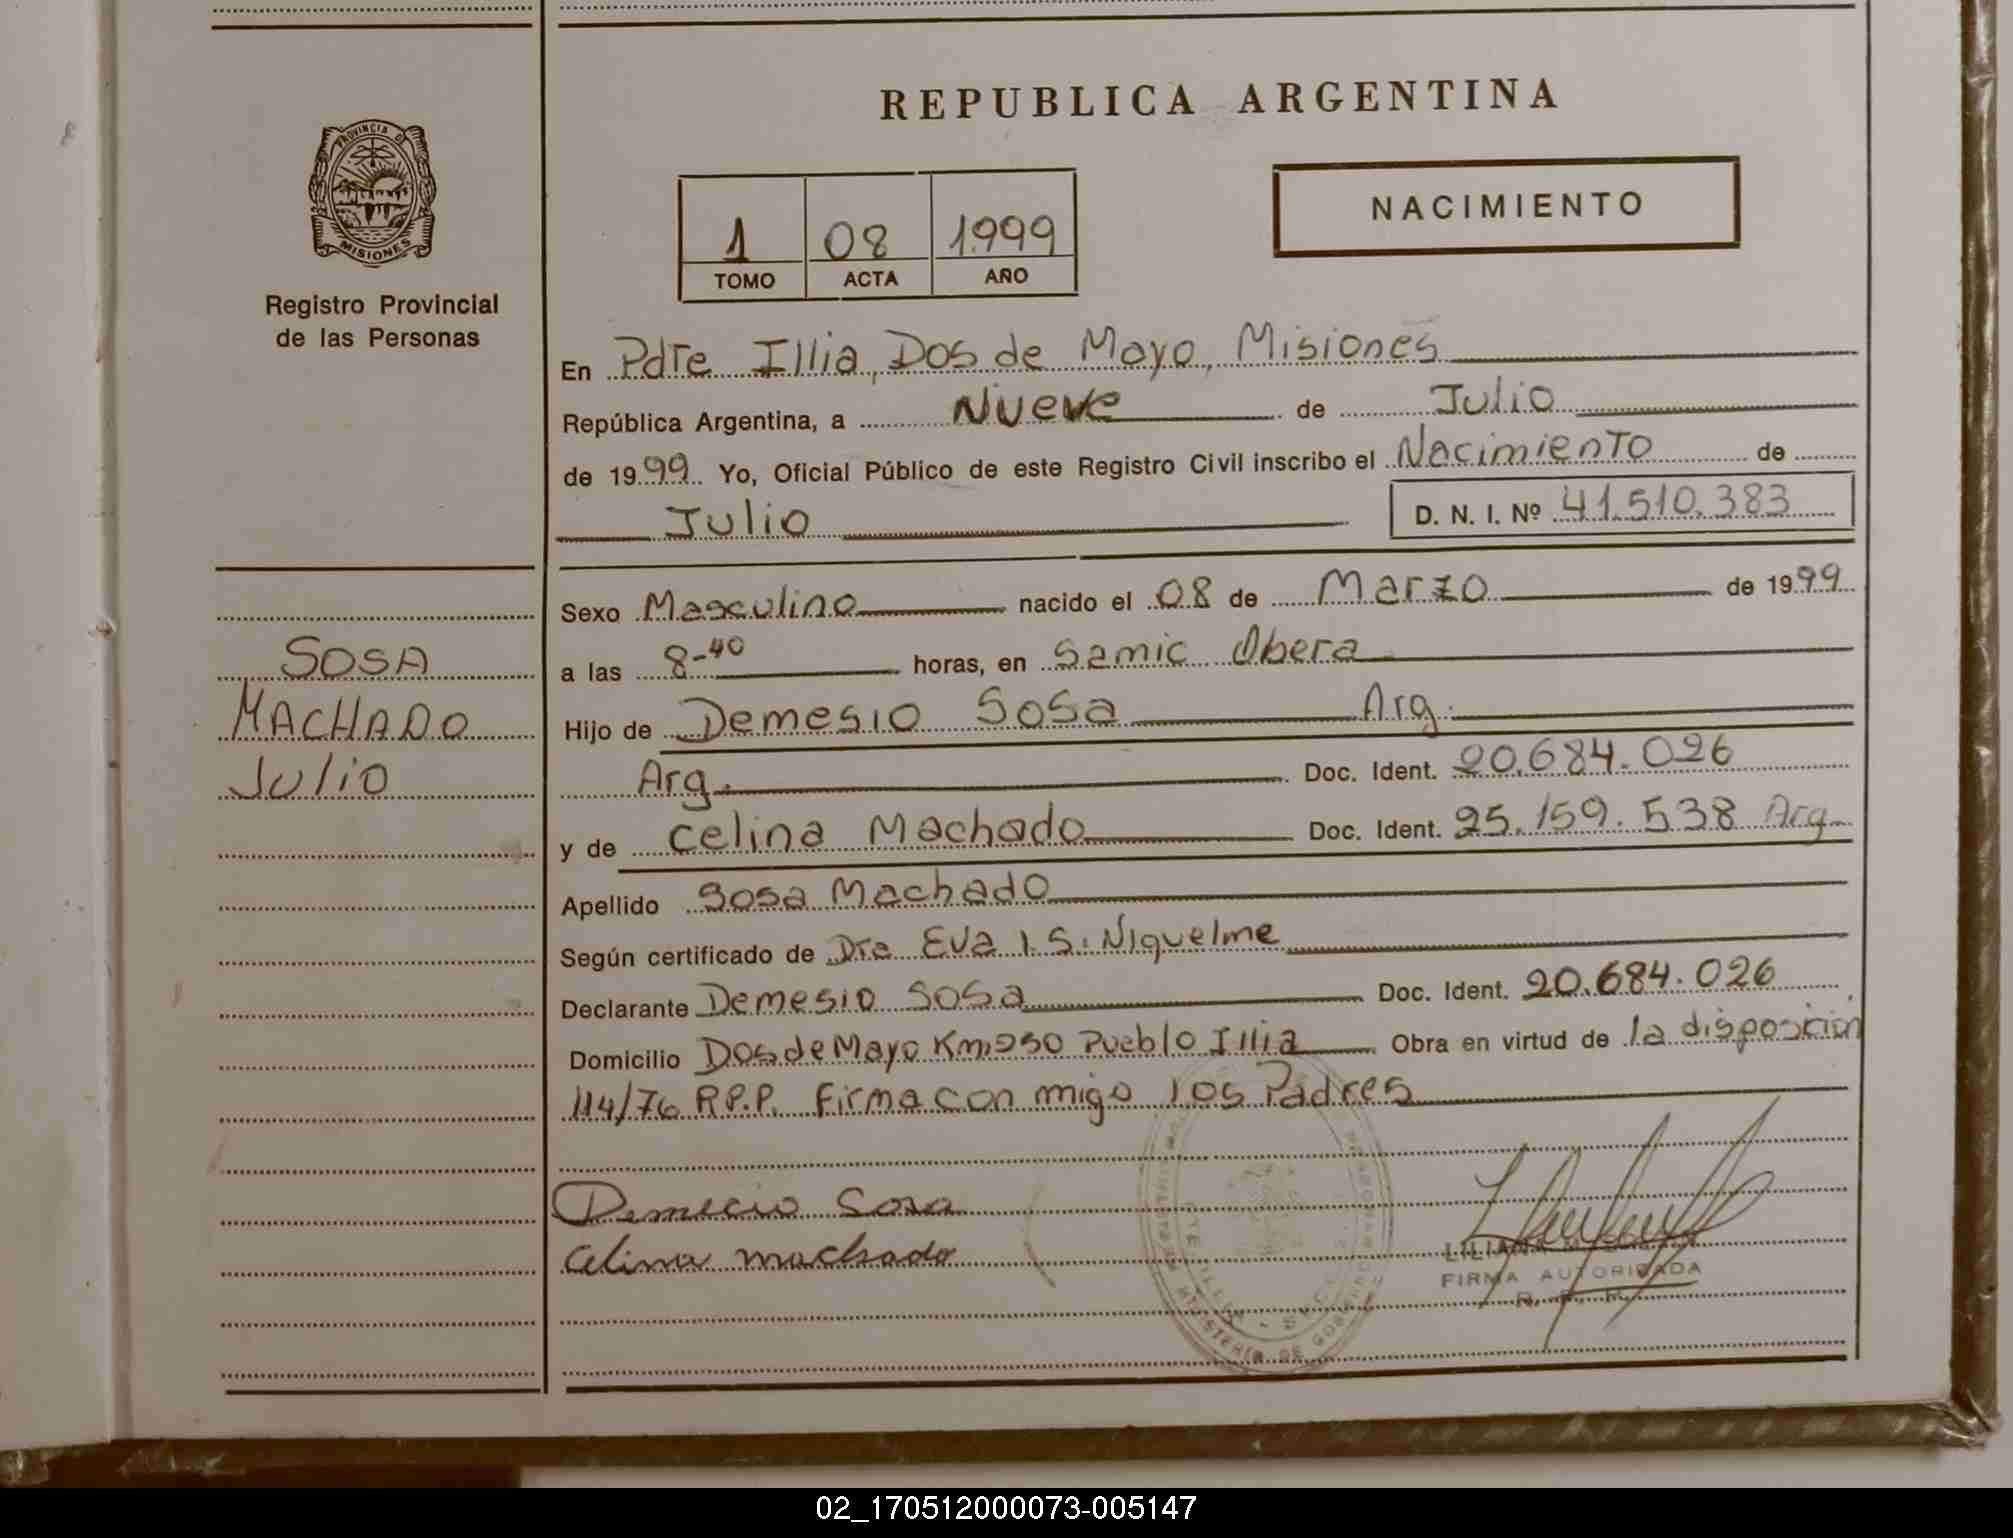 REPUBLICA ARGENTINA
PROVINCIA D
MISIONES
Registro Provincial
de las Personas
NACIMIENTO
1 08 1.999
TOMO ACTA AÑO
En Pdte Illia, Dos de Mayo, Misiones
República Argentina, a Nueve de Julio
de 1999 Yo, Oficial Público de este Registro Civil inscribo el Nacimiento de
Julio D. N. I. Nº 41.510.383
Sexo Masculino nacido el 08 de Marzo de 1999
SOSA
MACHADO
Julio
a las 8-40 horas, en Samic Obera
Hijo de Demesio Sosa Arg.
Arg. Doc. Ident. 20.684.026
y de Celina Machado Doc. Ident. 25.159.538 Arg.
Apellido Sosa Machado
Según certificado de Dra Eva I. S. Niquelme
Declarante Demesio Sosa Doc. Ident. 20.684.026
Domicilio Dos de Mayo Km, 250 Pueblo Illia Obra en virtud de la disposicion
114/76 R.P.P. Firma con migo los Padres
Demecio Sosa
Celina machado
FIRMA AUTORIZADA
MINISTERIO DE
02_170512000073-005147